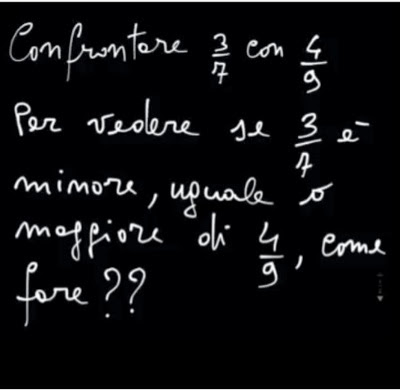 Confrontare 3/7 con 4/9
Per vedere se 3/7 è
minore, uguale o
maggiore di 4/9, come
fare ??